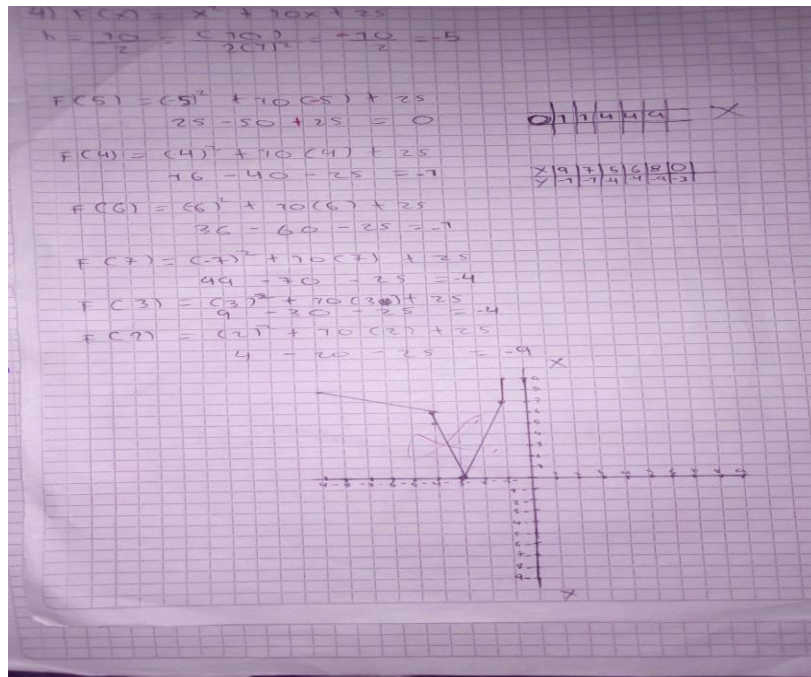 4) F(x) = x² + 10x + 25
h = 10/2 = (10)/2(1)² = -10/2 = -5
F(5) = (-5)² + 10(-5) + 25
25 - 50 + 25 = 0
0 1 1 4 4 9 X
F(4) = (4)² + 10(4) + 25
16 - 40 - 25 = -1
x 9 7 5 6 8 0
y -1 -1 4 -4 -9 -3
F(6) = (6)² + 10(6) + 25
36 - 60 - 25 = -1
F(7) = (-7)² + 10(7) + 25
49 - 70 - 25 = -4
F(3) = (3)² + 10(3) + 25
9 - 30 - 25 = -4
F(2) = (2)² + 10(2) + 25
4 - 20 - 25 = -9
X
X